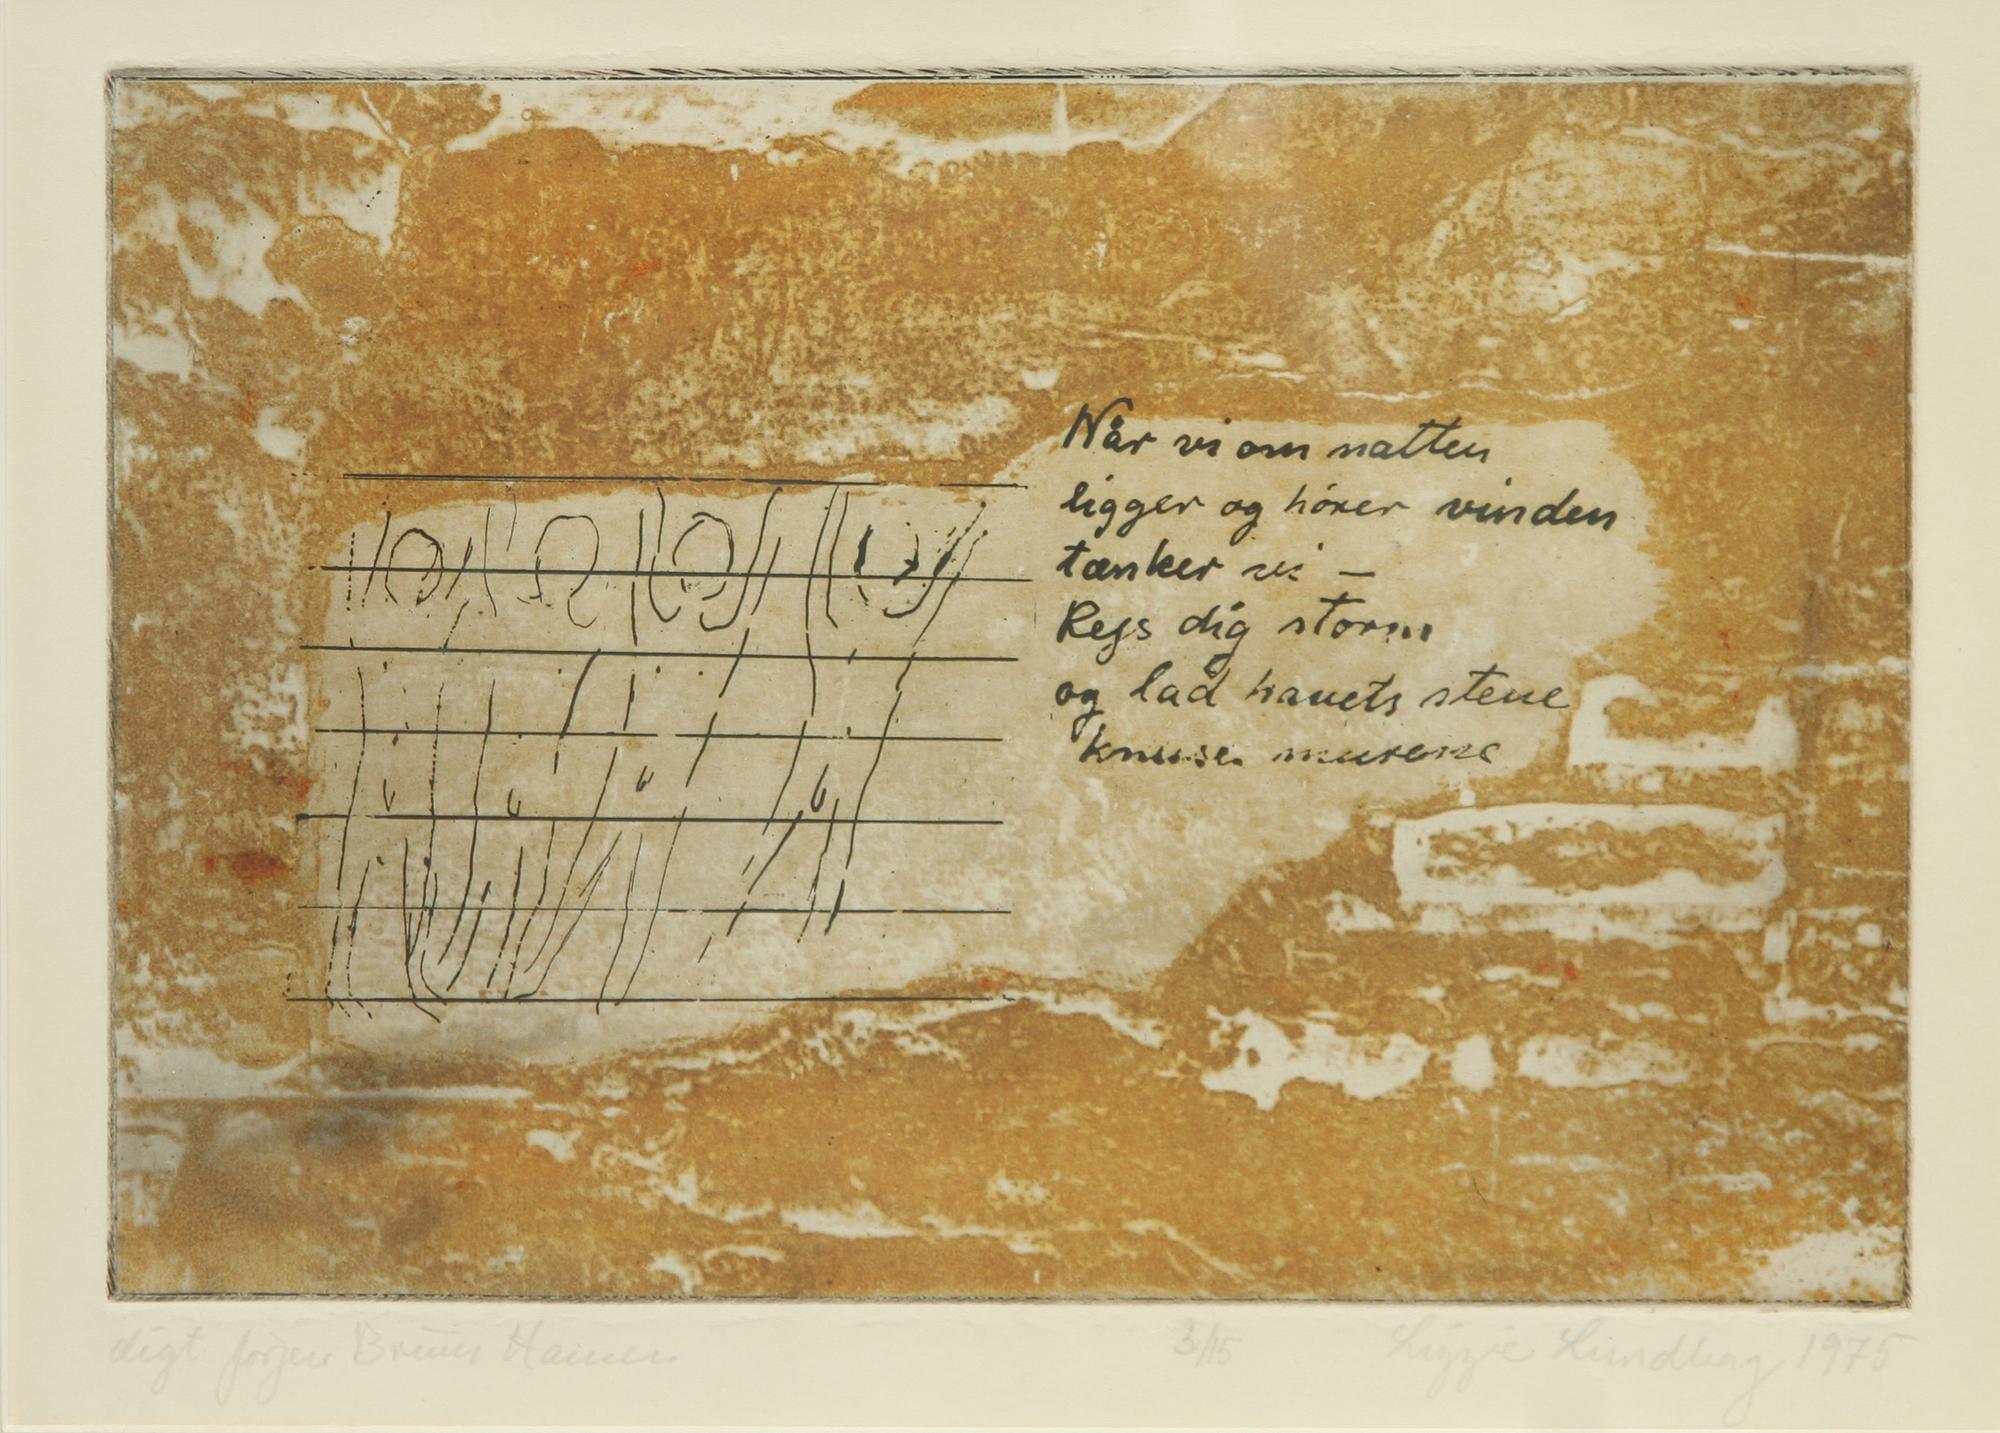 Når vi om natten
ligger og hører vinden
tænker vi —
Rejs dig storm
og lad havets stene
knuse murene
digt Jørgen Bruun Hansen
3/15
Lizzie Lundberg 1975